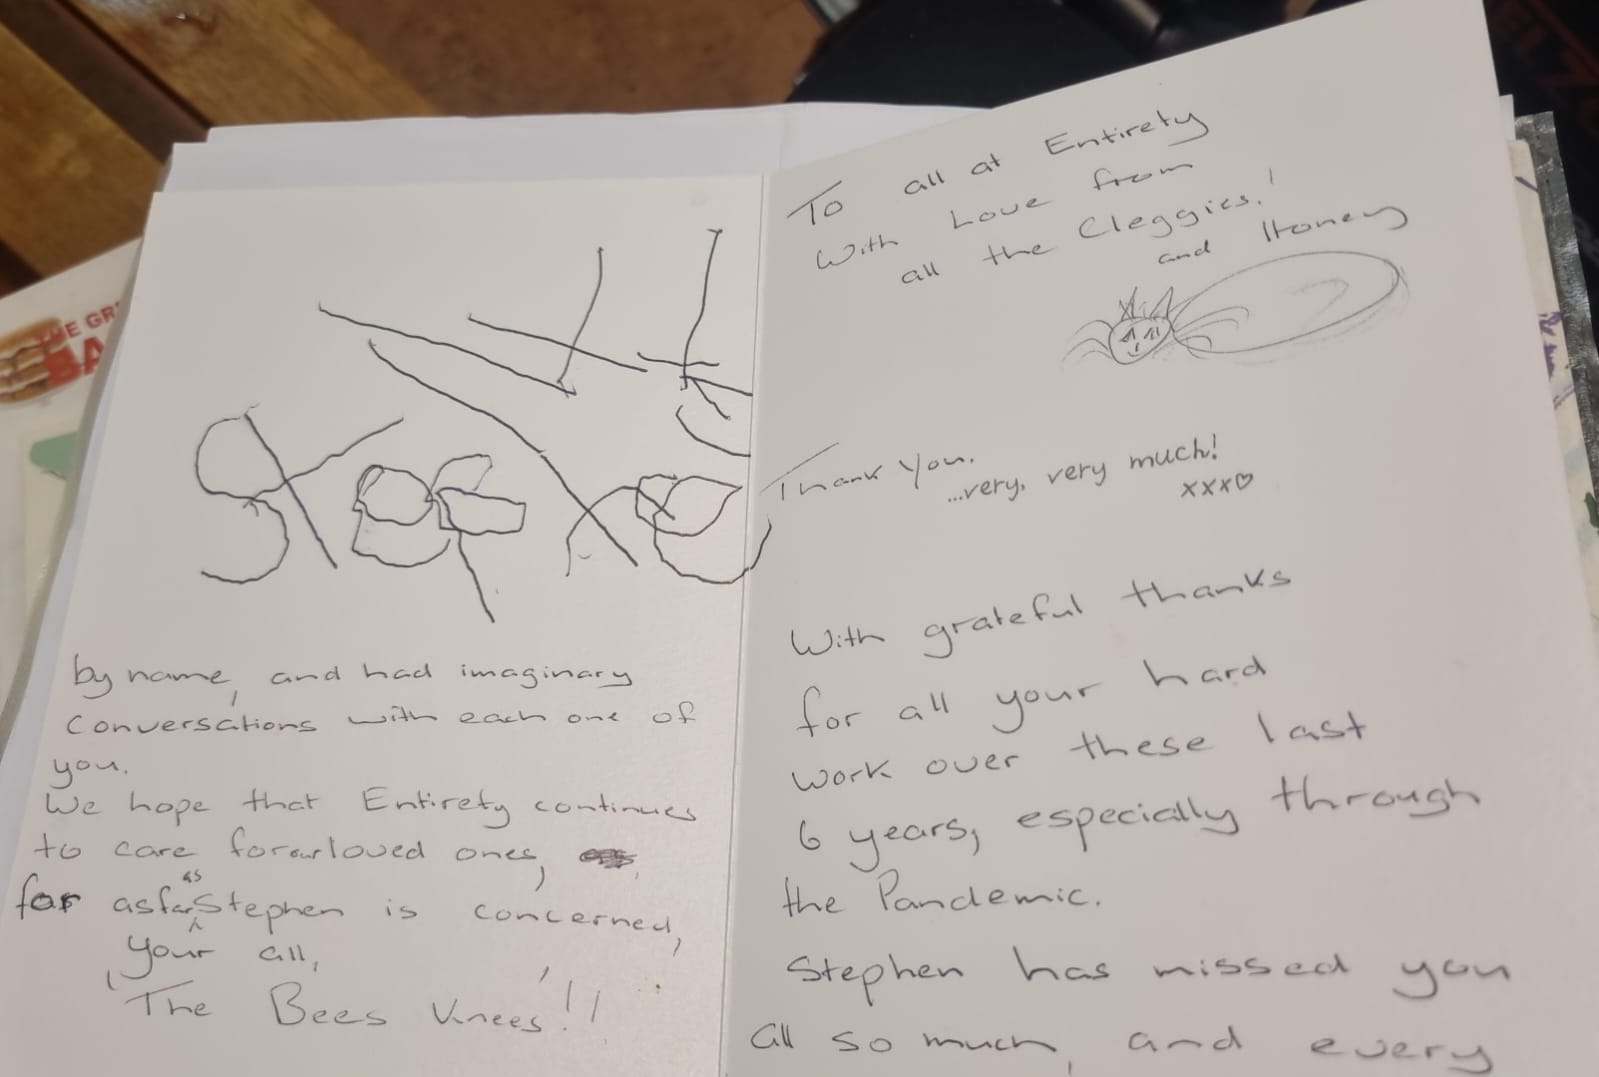 To all at Entirety
With Love from
all the Cleggies!
and Honey
Thank You.
...very, very much!
xxx♡
With grateful thanks
for all your hard
work over these last
6 years, especially through
the Pandemic.
Stephen has missed you
all so much, and every
by name, and had imaginary
conversations with each one of
you.
We hope that Entirety continues
to care for our loved ones,
for as far as Stephen is concerned,
your all,
'The Bees Knees'!!
THE GR
BA